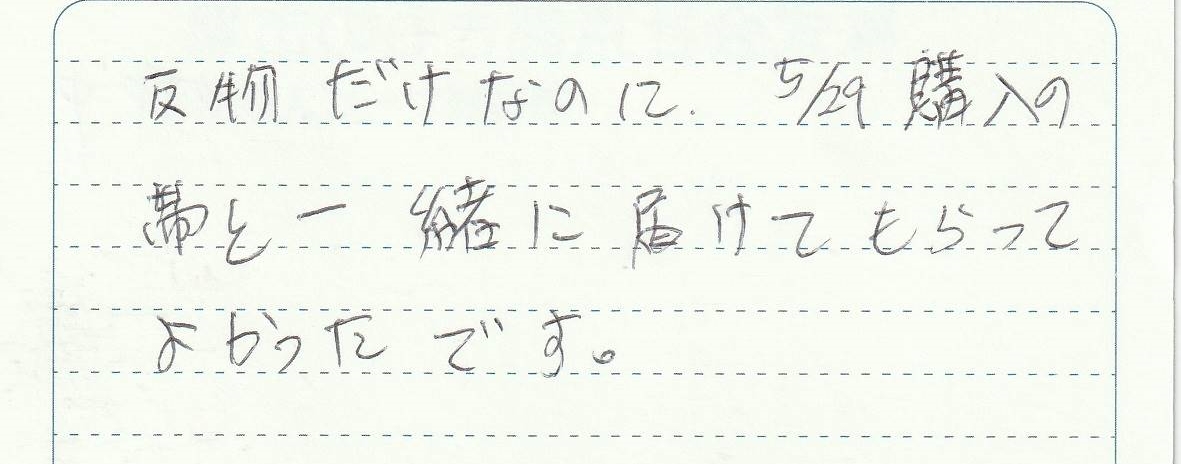 反物だけなのに、5/29購入の
帯と一緒に届けてもらって
よかったです。